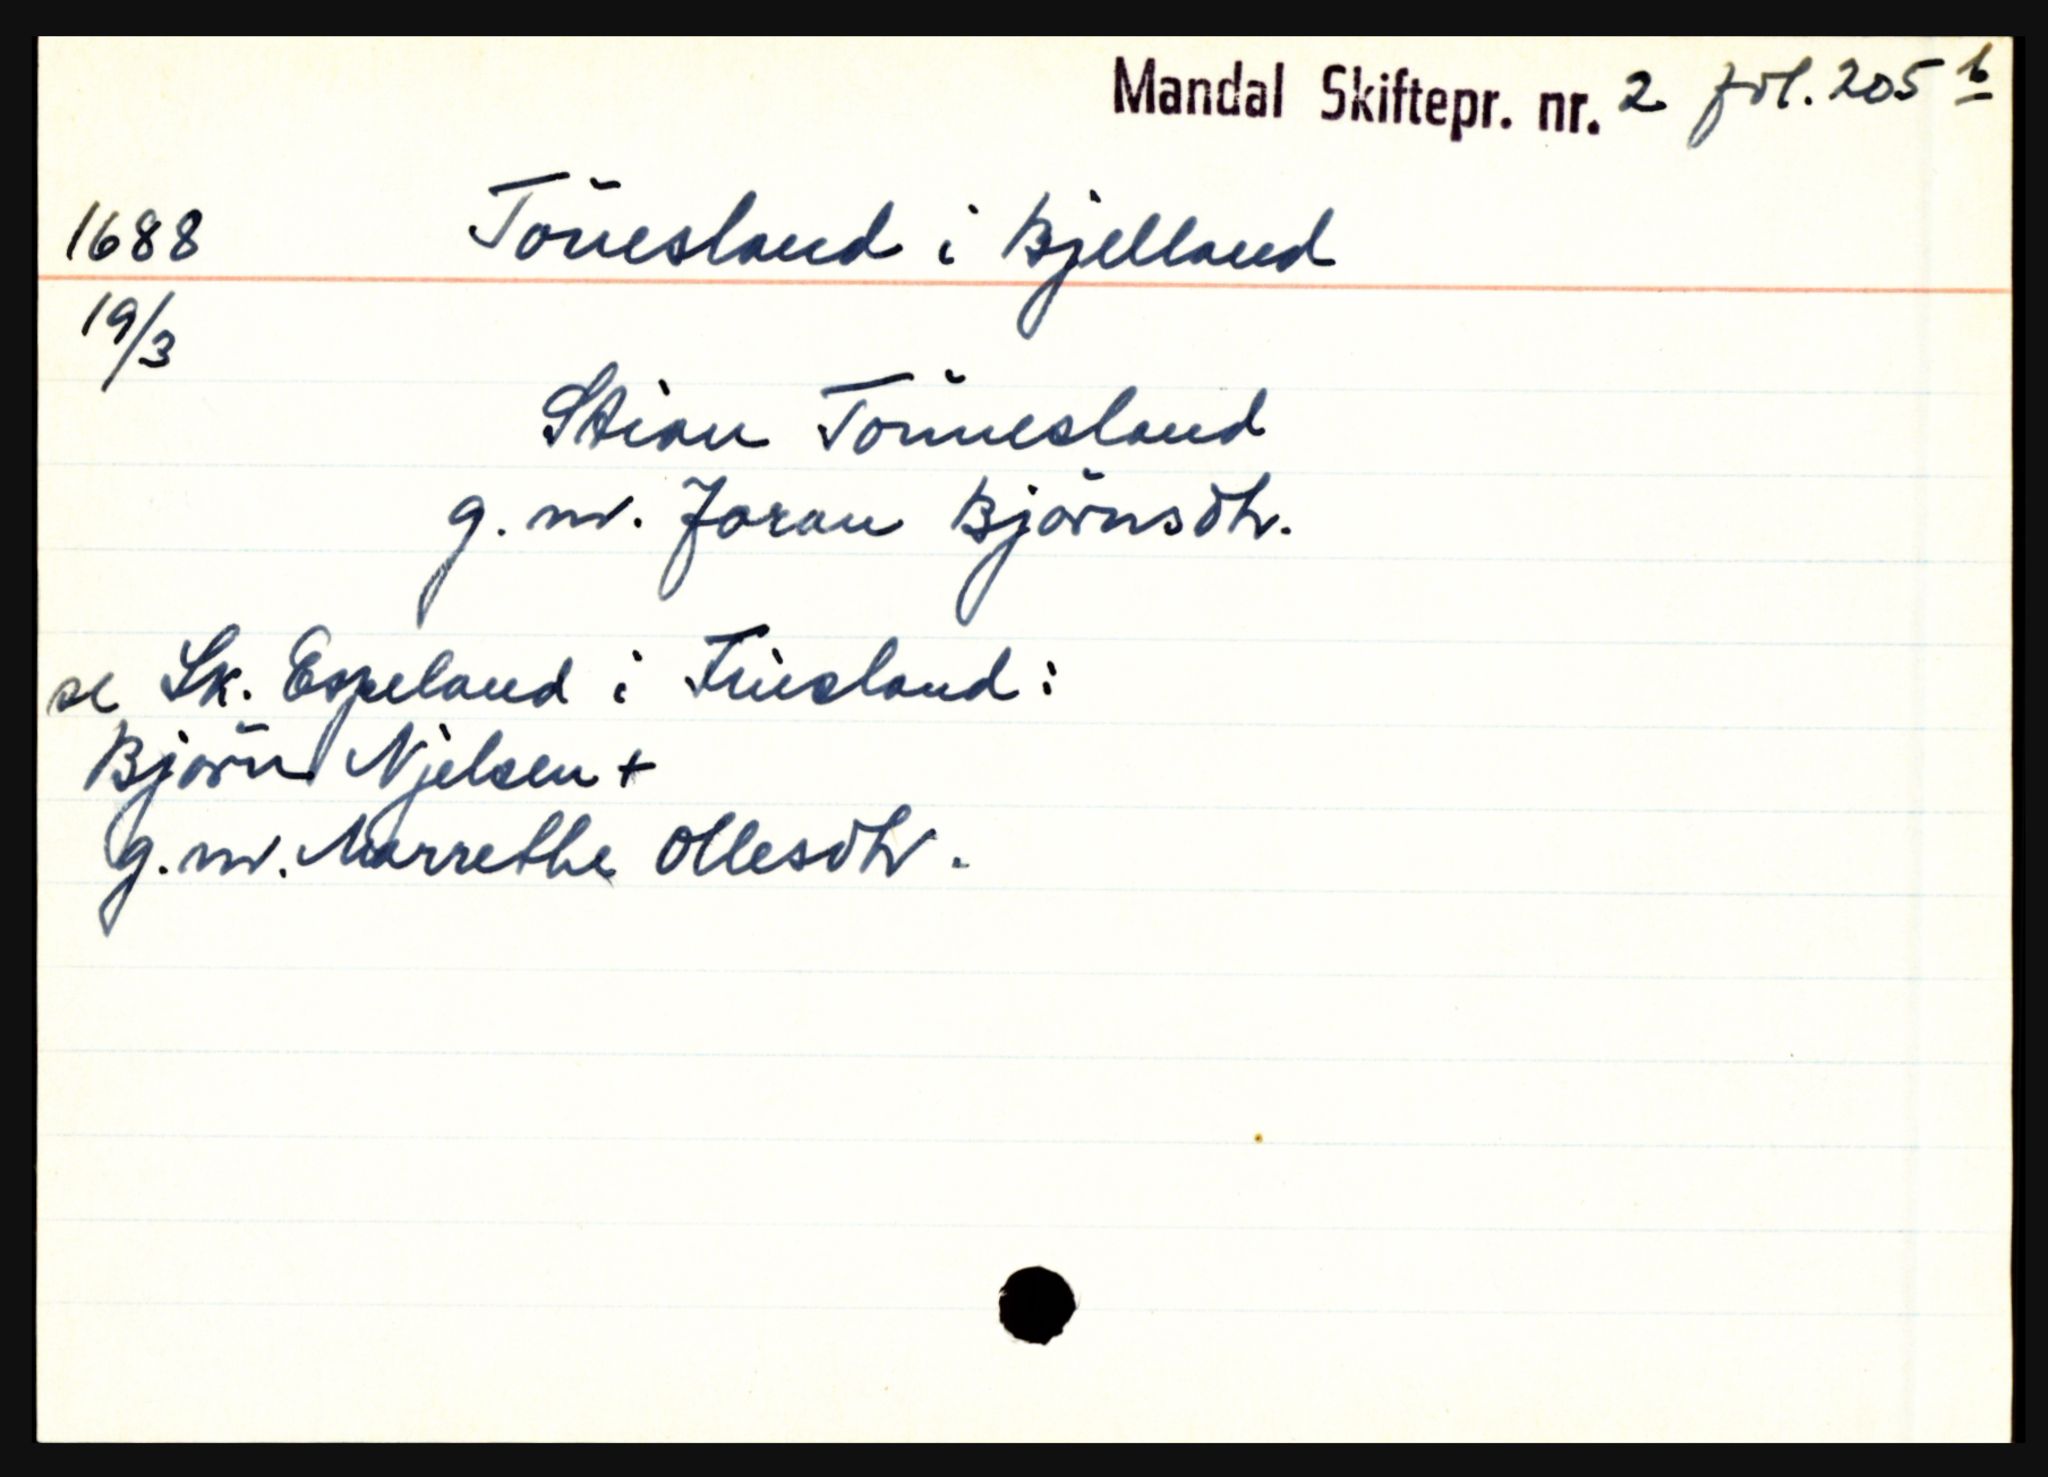 Mandal Skiftepr. nr. 2 fol. 205 b
1688 Tönesland i Bjelland
19/3
Stian Tönnesland
g. m. Joran Björnsdtr.
se Sk. Espeland i Finsland:
Björn Njelsen +
g. m. Marrethe Ollesdtr.